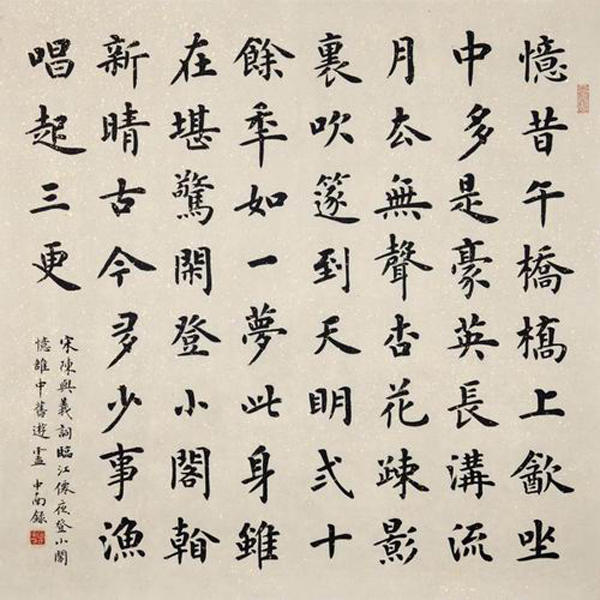 憶昔午橋槗上㱃坐
中多是豪英長溝流
月厺無聲杏花疎影
裏吹篴到天明弍十
餘秊如一夢此身雖
在堪驚閑登小閣看
新晴古今多少事漁
唱起三更
宋陳與義詞臨江僊夜登小閣
憶雒中舊遊 中南錄